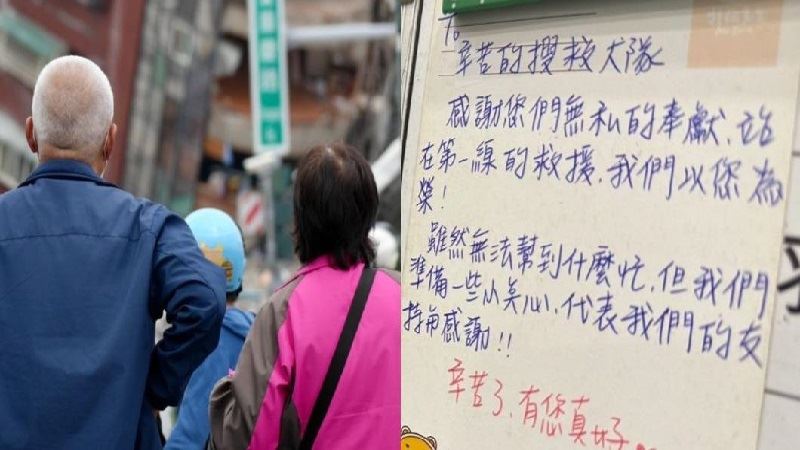 To
辛苦的搜救犬隊
感謝您們無私的奉獻,站
在第一線的救援,我們以您為
榮!
雖然無法幫到什麼忙,但我們
準備一些小美心,代表我們的支
持与感謝!!
辛苦了,有您真好